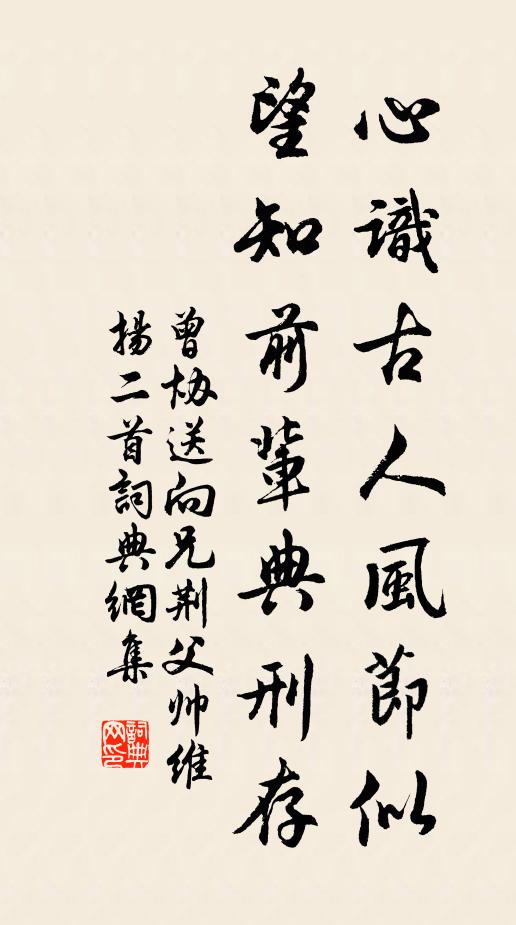 心識古人風節似
望知前輩典刑存
曾協送向兄荆父帅維
揚二首詞典網集
詞典网印